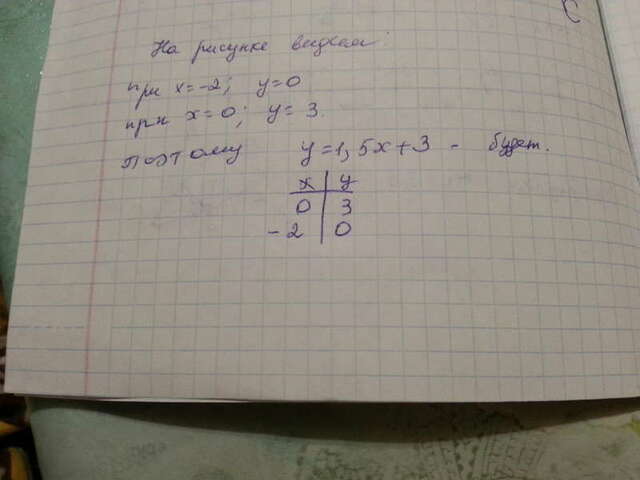 На рисунке видхем:
при x=-2; y=0
при x=0; y= 3.
поэтому y=1,5x+3 - будет.
x | y
0 | 3
-2 | 0